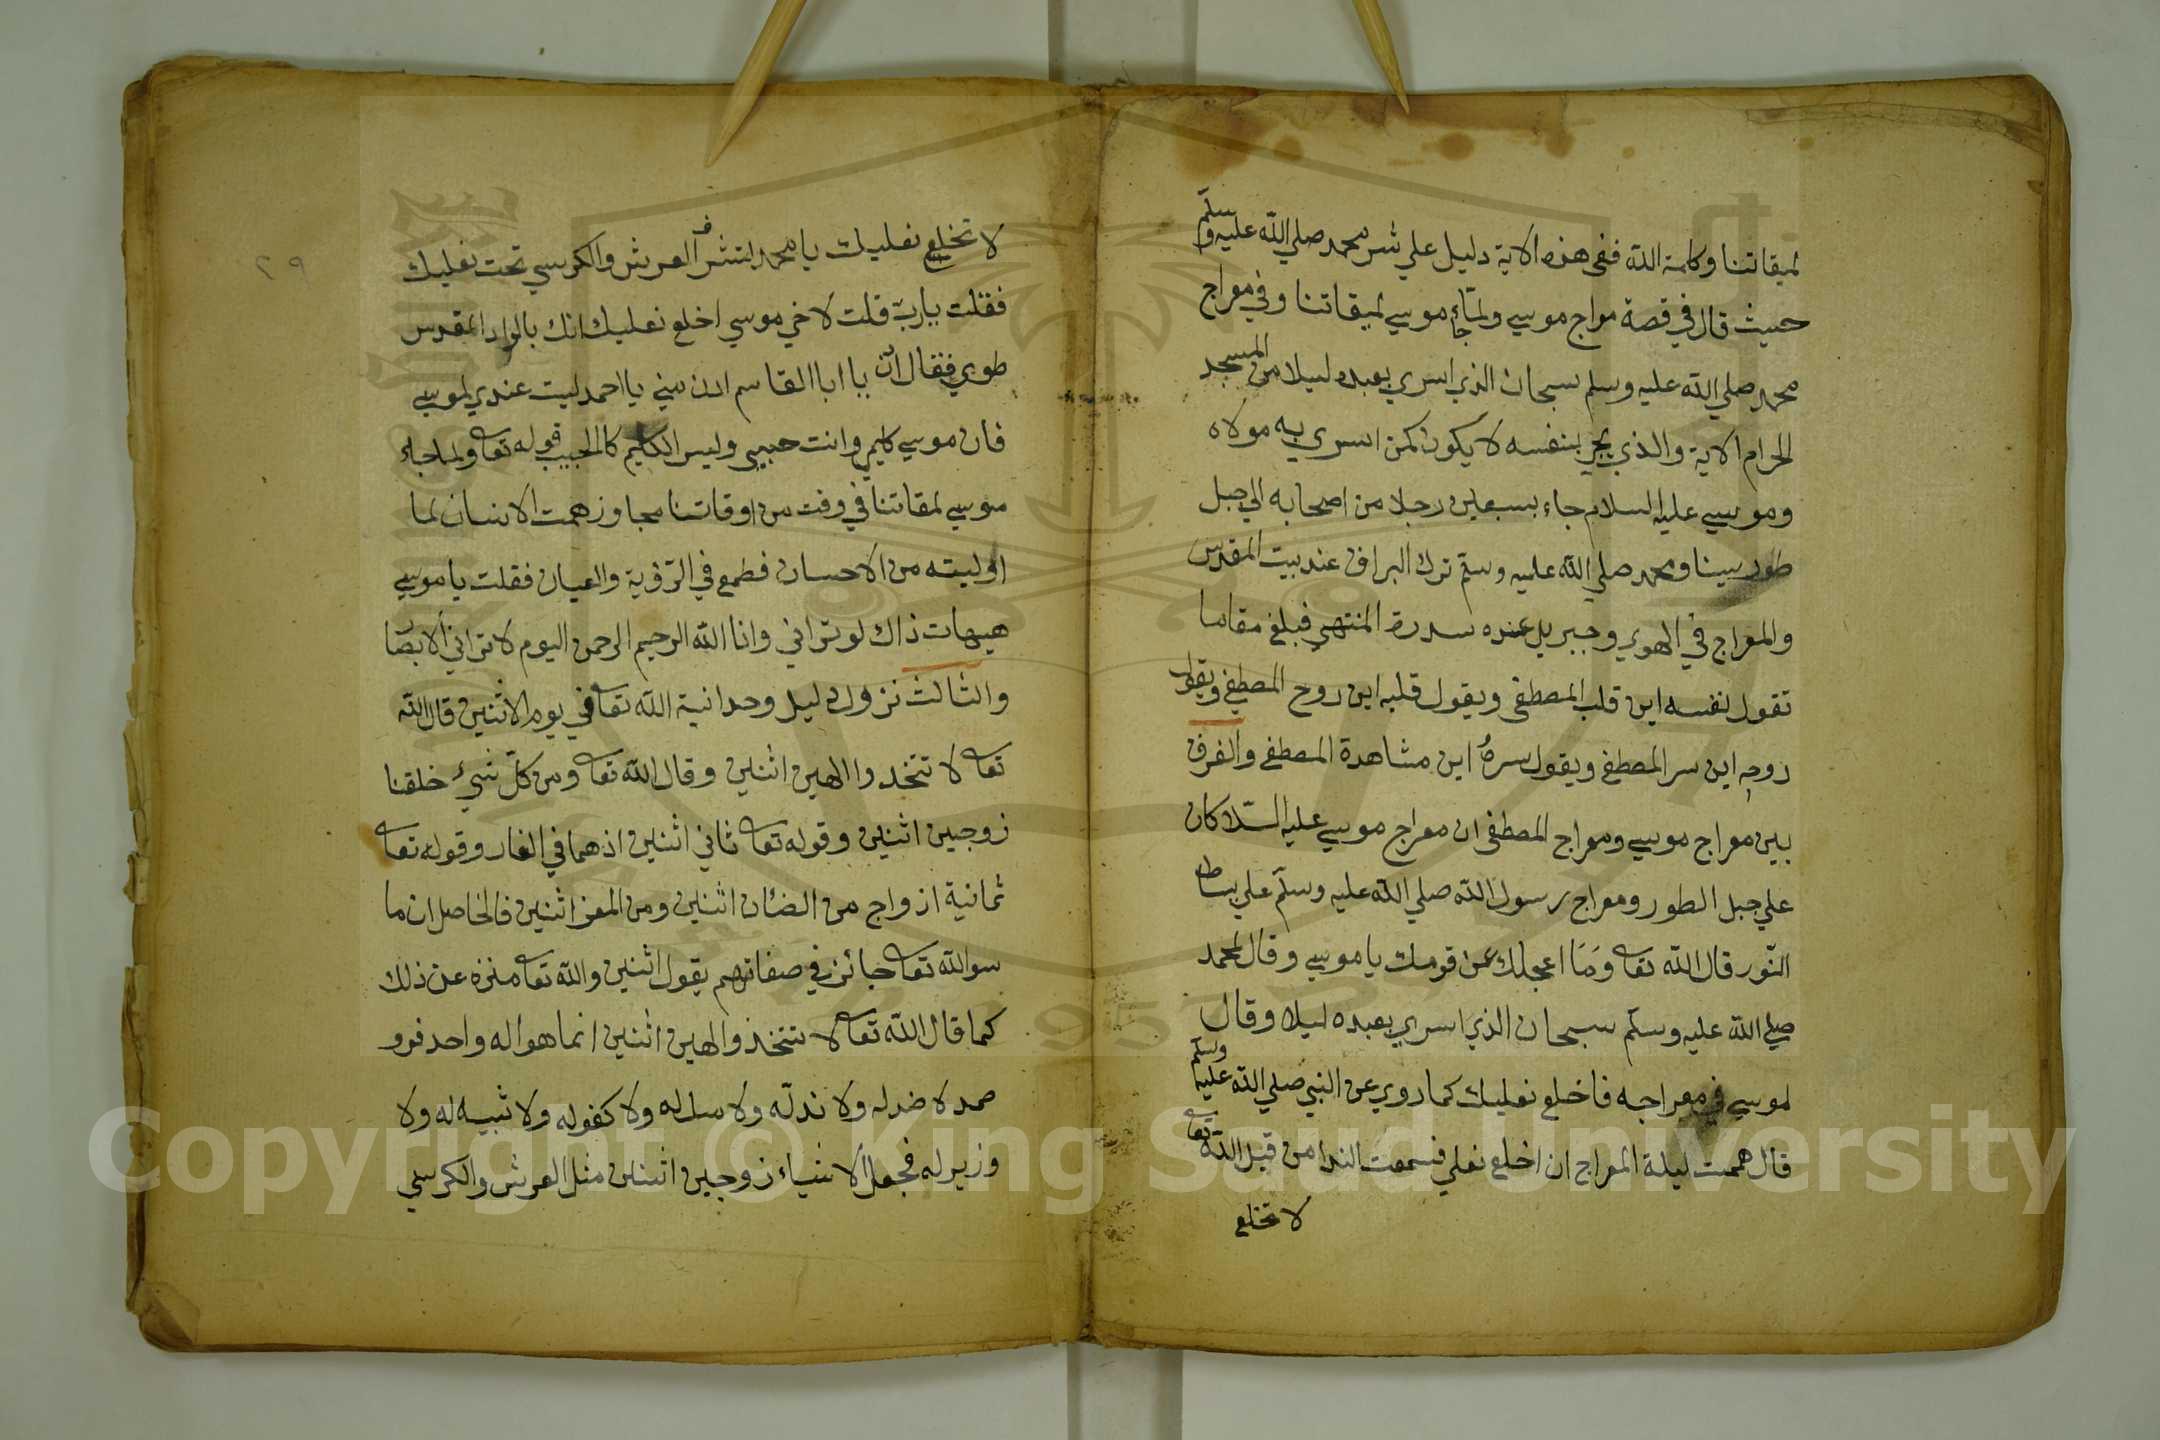 لميقاتنا وكلمه الله ففى هذه الاية دليل علي شرف محمد صلي الله عليه وسلم
حيث قال في قصة مواج موسي ولما جاء موسي لميقاتنا وفي معراج
محمد صلي الله عليه وسلم سبحان الذي اسري بعبده ليلا من المسجد
الحرام الاية والذي يجئ بنفسه لا يكون كمن اسري به مولاه
وموسي عليه السلام جاء بسبعين رجلا من اصحابه الي جبل
طور سينا ومحمد صلي الله عليه وسلم ترك البراق عند بيت المقدس
والمعراج في الهوي وجبريل عنده سدرة المنتهي فبلغ مقاما
تقول نفسه اين قلب المصطفى ويقول قلبه اين روح المصطفي ويقول
روحه اين سر المصطفي ويقول سره اين مشاهدة المصطفي والفرق
بين معراج موسي ومعراج المصطفى ان معراج موسي عليه السلا كان
علي جبل الطور ومعراج رسول الله صلي الله عليه وسلم علي بساط
النور قال الله تعا وما اعجلك عن قومك يا موسي وقال لمحمد
صلي الله عليه وسلم سبحان الذي اسري بعبده ليلا وقال
لموسي في معراجه فاخلع نعليك كما روي عن النبي صلي الله عليه وسلم
قال هممت ليلة المعراج ان اخلع نعلي فسمعت الندا من قبل الله تعا
لا تخلع
٢٩
لا تخلع نعليك يا محمد لتشرف العرش والكرسي تحت نعليك
فقلت يا رب قلت لاخي موسي اخلع نعليك انك بالواد المقدس
طوي فقال ادن يا ابا القاسم ادن مني يا احمد ليت عندي لموسي
فان موسي كليمي وانت حبيبي وليس الكليم كالحبيب قوله تعا ولما جاء
موسي لمقاتنا في وقت من اوقاتنا مجاوز همت الانسان لما
اوليته من الاحسان فطمع في الرؤية والعيان فقلت يا موسي
هيهات ذاك لو تراني وانا الله الرحيم الرحمن اليوم لا تراني الابصا
والثالث نزول دليل وحدانية الله تعا في يوم الاثنين قال الله
تعا لا تتخدوا الهين اثنين وقال الله تعا ومن كل شيء خلقنا
زوجين اثنين وقوله تعا ثاني اثنين اذ هما في الغار وقوله تعا
ثمانية ازواج من الضئان اثنين ومن المعز اثنين فالحاصل ان ما
سو الله تعا جائز في صفاتهم يقول اثنين والله تعا منزه عن ذلك
كما قال الله تعا لا تتخذوا الهين اثنين انما هو اله واحد فرو
صمد لا ضد له ولا ند له ولا مثل له ولا كفو له ولا شبيه له ولا
وزير له فجعل الاشياء زوجين اثنين مثل العرش والكرسي
Copyright © King Saud University